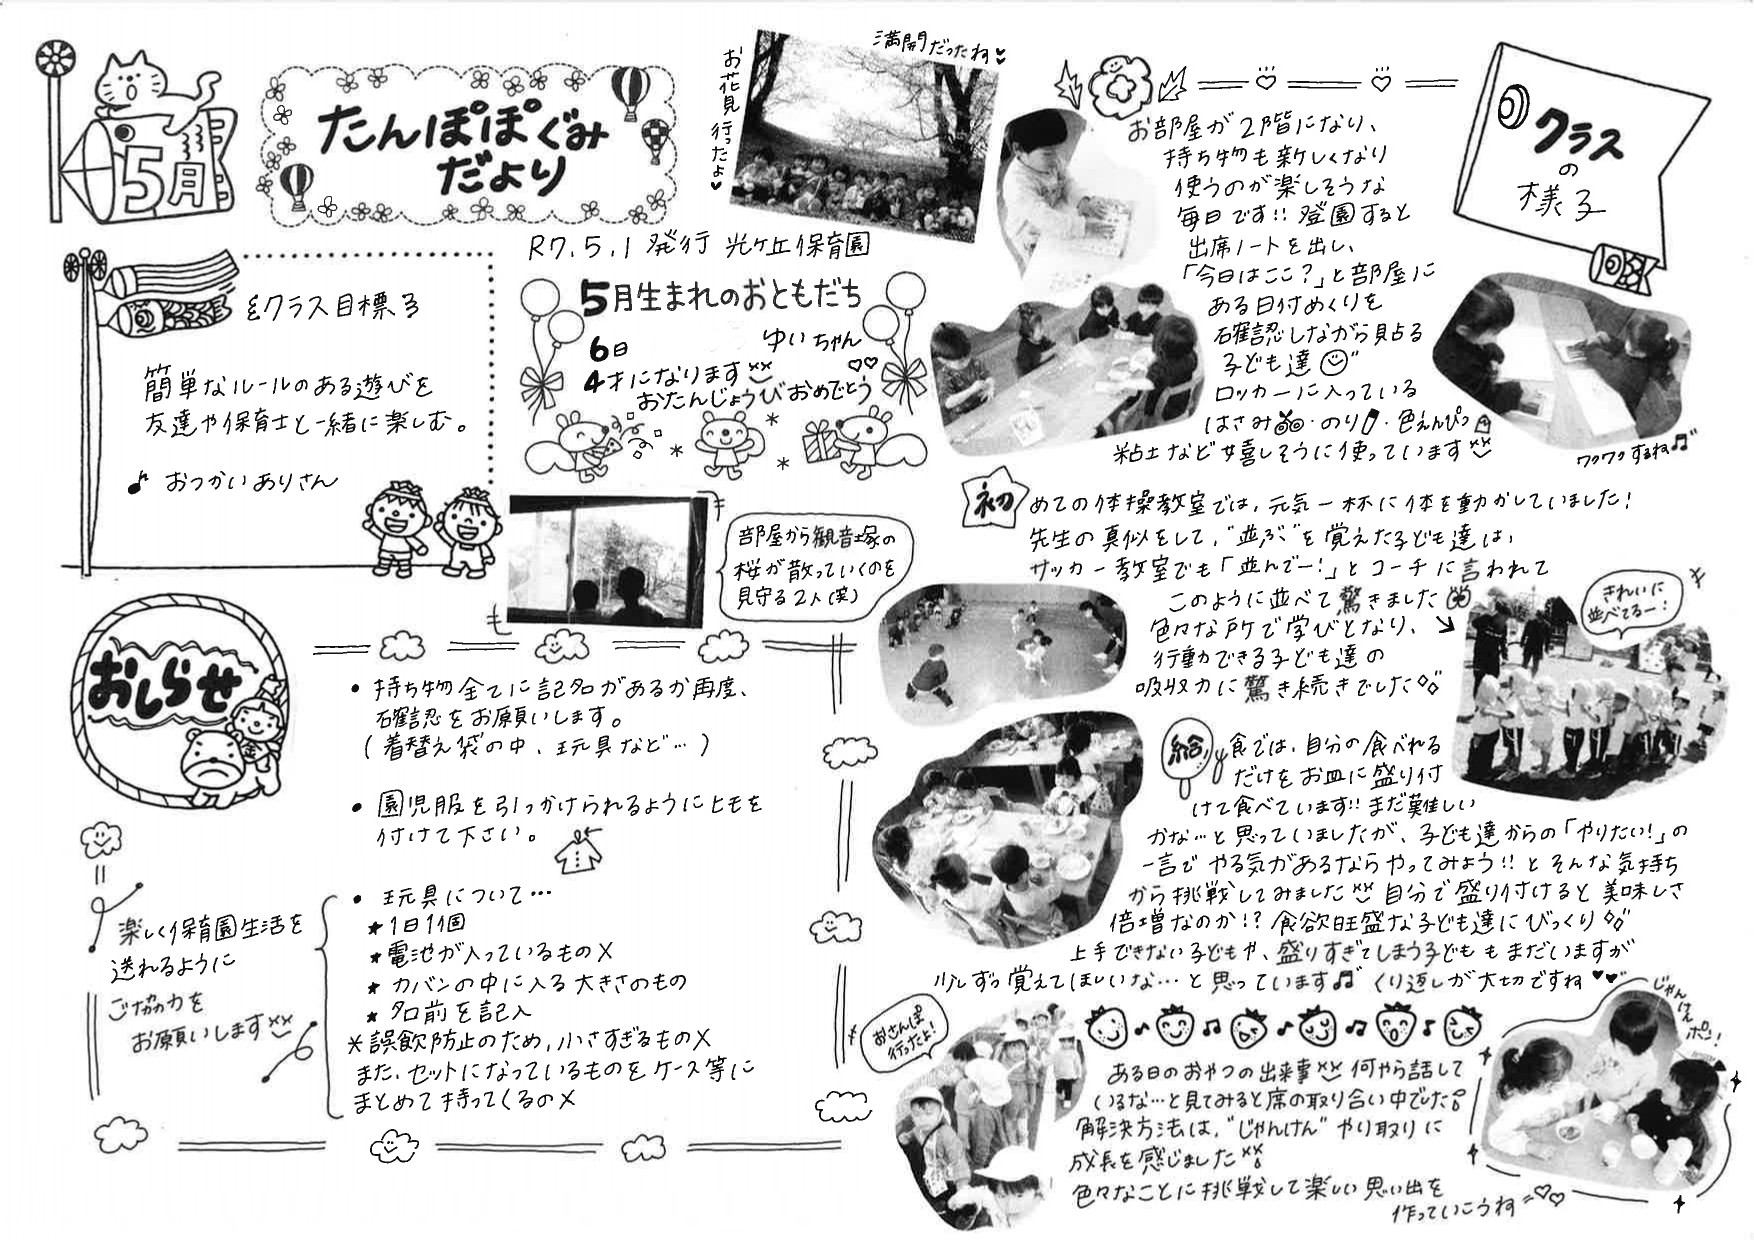 5月
たんぽぽぐみ
だより
R7.5.1 発行 光ケ丘保育園
お花見行ったよ♥
満開だったね♥
クラス目標
簡単なルールのある遊びを
友達や保育士と一緒に楽しむ。
♪ おつかいありさん
5月生まれのおともだち
6日 ゆいちゃん
4才になります
おたんじょうびおめでとう
部屋から観音塚の
桜が散っていくのを
見守る2人(笑)
おしらせ
・持ち物全てに記名があるか再度、
確認をお願いします。
(着替え袋の中、玩具など…)
・園児服を引っかけられるようにヒモを
付けて下さい。
・玩具について…
★1日1個
★電池が入っているもの×
★カバンの中に入る大きさのもの
★名前を記入
※誤飲防止のため、小さすぎるもの×
また、セットになっているものをケース等に
まとめて持ってくるの×
楽しく保育園生活を
送れるように
ご協力を
お願いします
クラス
の
様子
お部屋が2階になり、
持ち物も新しくなり
使うのが楽しそうな
毎日です!! 登園すると
出席ノートを出し、
「今日はここ?」と部屋に
ある日付めくりを
確認しながら貼る
子ども達
ロッカーに入っている
はさみ・のり・色えんぴつ
粘土など嬉しそうに使っています
ワクワクするね♫
初めての体操教室では、元気一杯に体を動かしていました!
先生の真似をして、"並ぶ"を覚えた子ども達は、
サッカー教室でも「並んでー!」とコーチに言われて
このように並べて驚きました
色々な所で学びとなり、
行動できる子ども達の
吸収力に驚き続きでした
きれいに
並べてるー!
給食では、自分の食べれる
だけをお皿に盛り付
けて食べています!! まだ難しい
かな…と思っていましたが、子ども達からの「やりたい!」の
一言で やる気があるならやってみよう!! とそんな気持ち
から挑戦してみました 自分で盛り付けると美味しさ
倍増なのか!? 食欲旺盛な子ども達にびっくり
上手できない子どもや、盛りすぎてしまう子どももまだいますが
少しずつ覚えてほしいな…と思っています♫ くり返しが大切ですね♥♥
おさんぽ
行ったよ!
ある日のおやつの出来事 何やら話して
いるな…と見てみると席の取り合い中でした
解決方法は、"じゃんけん" やり取りに
成長を感じました
色々なことに挑戦して楽しい思い出を
作っていこうね
じゃんけん
ポン!